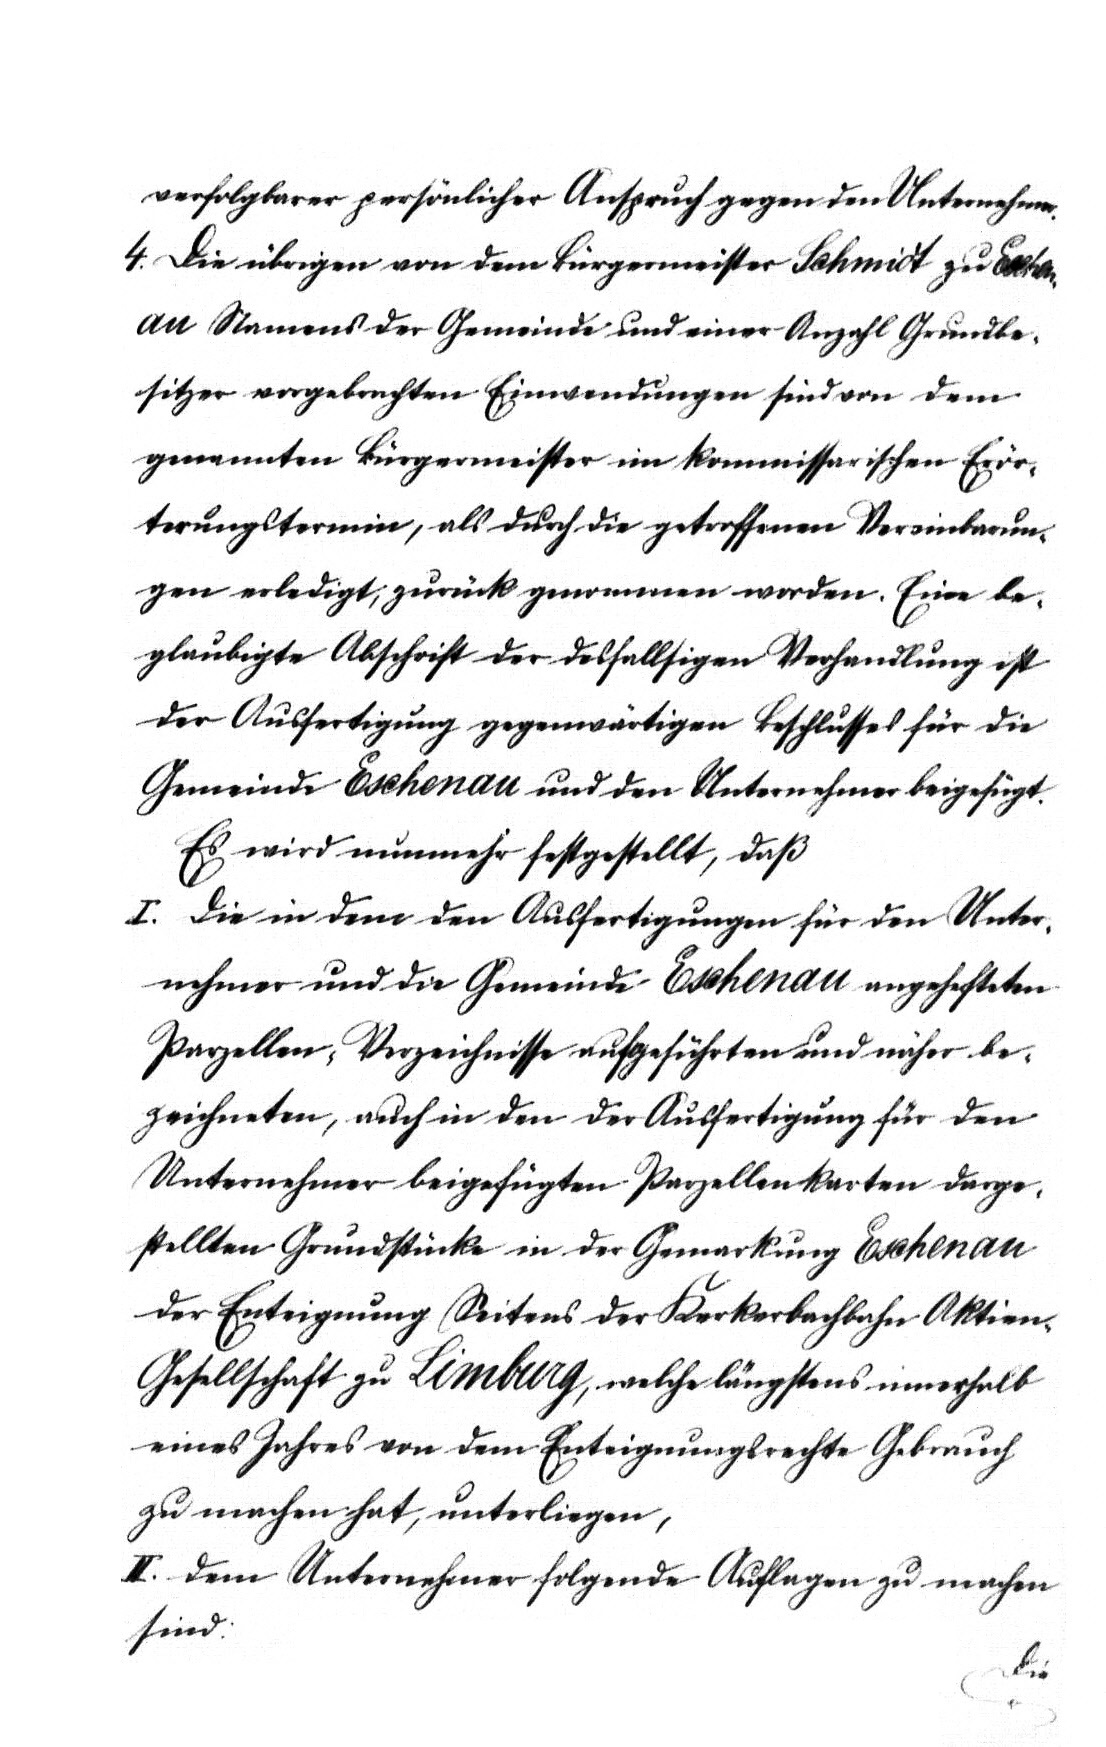 verfolgbarer persönlicher Anspruch gegen den Unternehmer.
4. Die übrigen von dem Bürgermeister Schmidt zu Eschen-
au Namens der Gemeinde und einer Anzahl Grundbe-
sitzer vorgebrachten Einwendungen sind von dem
genannten Bürgermeister im kommissarischen Erör-
terungstermin, als durch die getroffenen Vereinbarun-
gen erledigt, zurück genommen worden. Eine be-
glaubigte Abschrift der desfallsigen Verhandlung ist
der Ausfertigung gegenwärtigen Beschlusses für die
Gemeinde Eschenau und den Unternehmer beigefügt.
Es wird nunmehr festgestellt, daß
I. die in dem den Ausfertigungen für den Unter-
nehmer und die Gemeinde Eschenau angehefteten
Parzellen-Verzeichnisse aufgeführten und näher be-
zeichneten, auch in den der Ausfertigung für den
Unternehmer beigefügten Parzellenkarten darge-
stellten Grundstücke in der Gemarkung Eschenau
der Enteignung Seitens der Kerkerbachbahn Aktien-
Gesellschaft zu Limburg, welche längstens innerhalb
eines Jahres von dem Enteignungsrechte Gebrauch
zu machen hat, unterliegen,
II. dem Unternehmer folgende Auflagen zu machen
sind:
Die